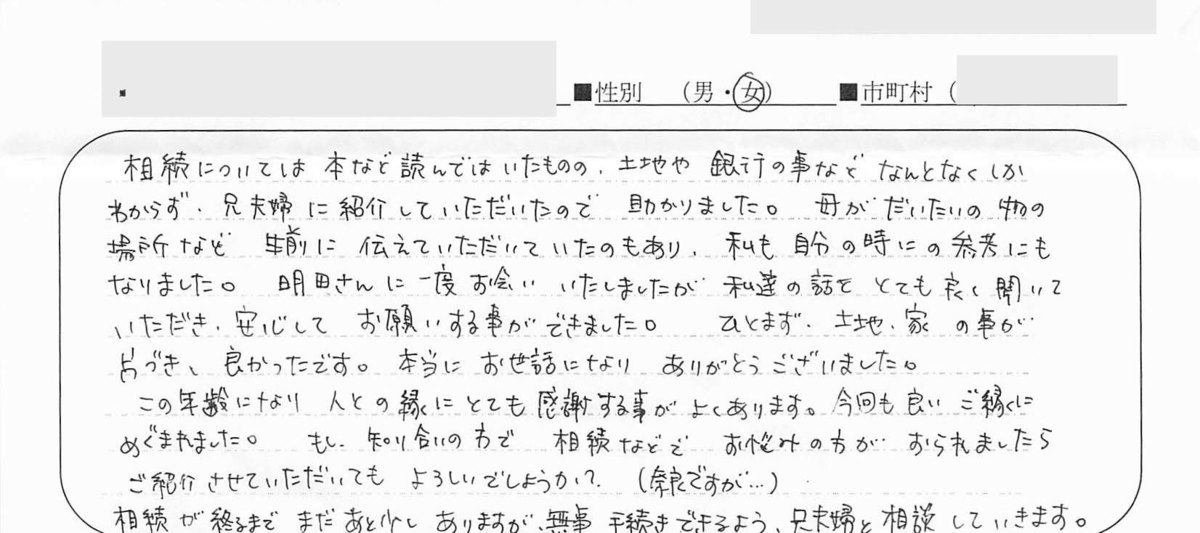 ■性別 （男・女） ■市町村（
相続については 本など読んではいたものの、土地や 銀行の事など なんとなくしか
わからず、兄夫婦に紹介していただいたので 助かりました。 母が だいたいの 物の
場所など 生前に 伝えていただいていたのもあり、私も 自分の時にの参考にも
なりました。 明田さんに一度お会い いたしましたが 私達の話を とても良く聞いて
いただき、安心して お願いする事ができました。 ひとまず、土地、家 の事が
片づき、良かったです。本当に お世話になり ありがとうございました。
この年齢になり 人との縁にとても感謝する事が よくあります。今回も良い ご縁に
めぐまれました。 もし、知り合いの方で 相続などで お悩みの方が おられましたら
ご紹介させていただいても よろしいでしょうか？ （奈良ですが…）
相続が終るまで まだあと少し ありますが、無事 手続きできるよう、兄夫婦と 相談していきます。